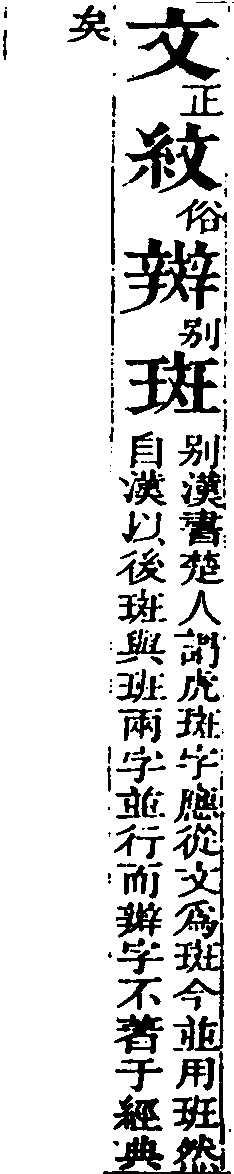 文正紋俗辬別斑別漢書楚人謂虎斑字應從文為斑今並用班然
自漢以後斑與班兩字並行而辬字不著于經典
矣